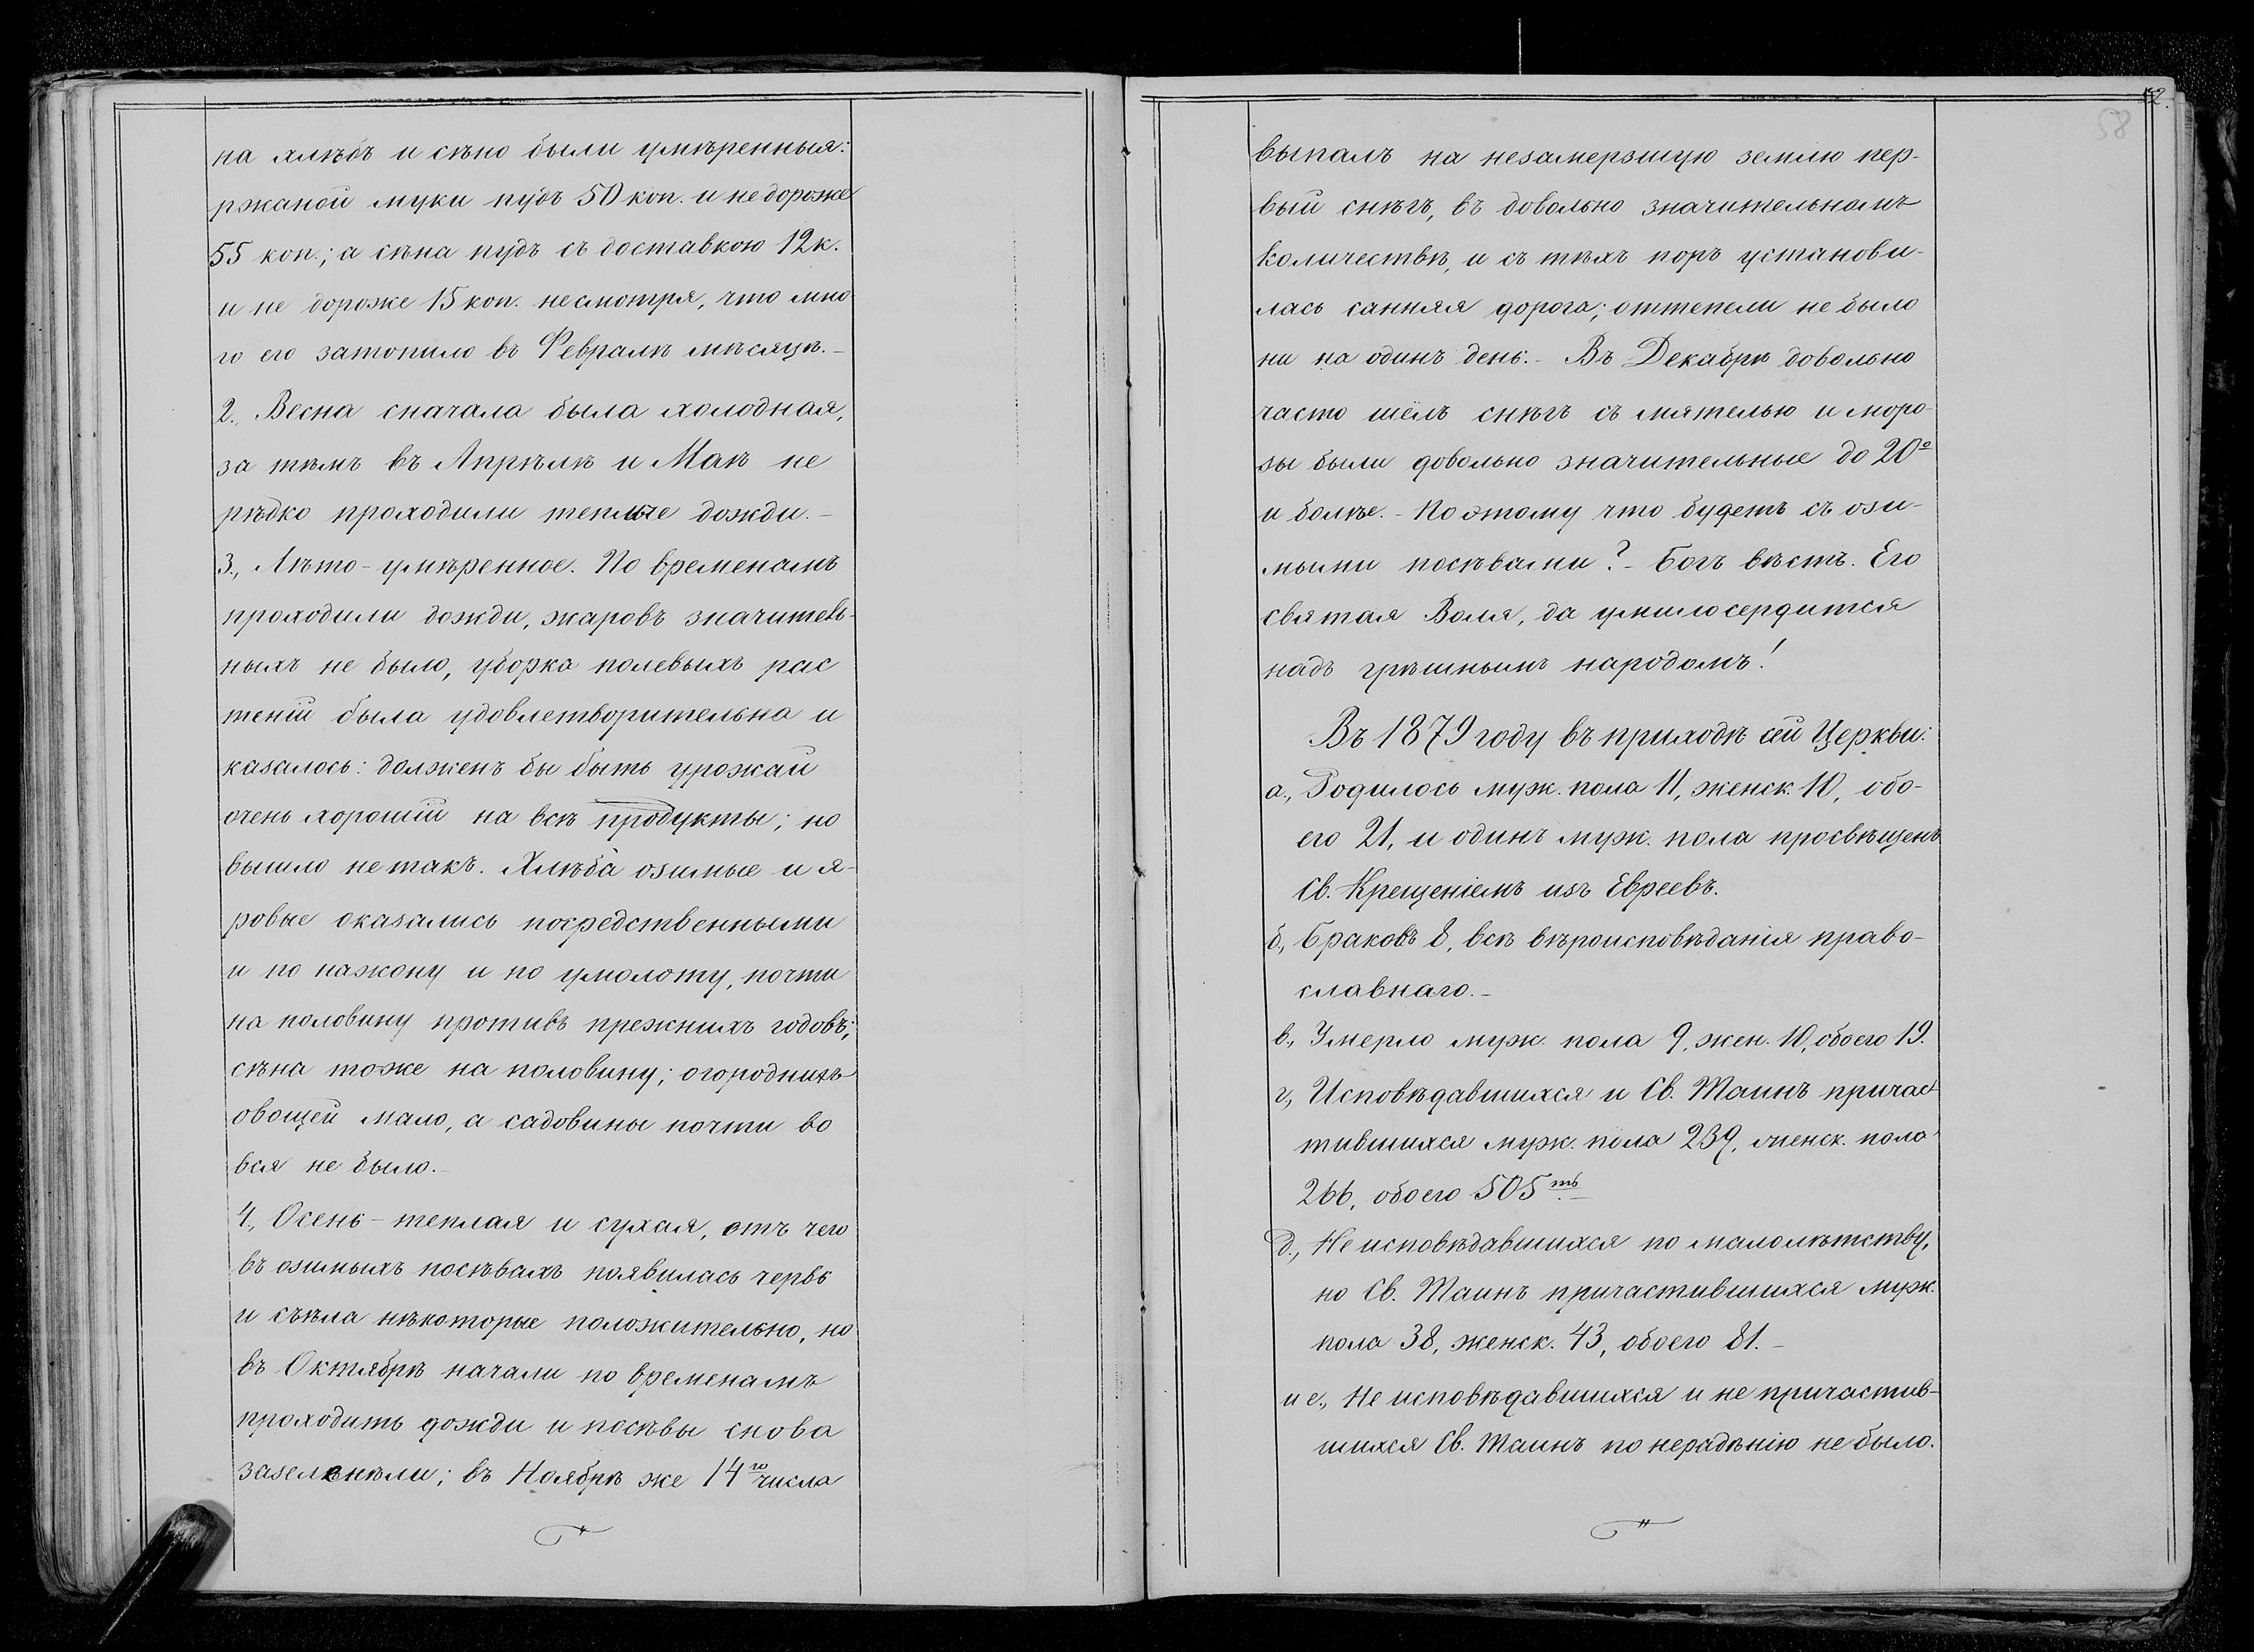 на хлѣбъ и сѣно были умѣренныя:
ржаной муки пудъ 50 коп. и не дороже
55 коп.; а сѣна пудъ съ доставкою 12 к.
и не дороже 15 коп. несмотря, что мно
го его затопило въ Февралѣ мѣсяцѣ.–
2., Весна сначала была холодная,
за тѣмъ въ Апрѣлѣ и Маѣ не
рѣдко проходили теплые дожди.–
3., Лѣто – умѣренное. По временамъ
проходили дожди, жаровъ значитель-
ныхъ не было, уборка полевыхъ рас
теній была удовлетворительна и
казалось: долженъ бы быть урожай
очень хорошій на всѣ продукты; но
вышло не такъ. Хлѣба озимые и я-
ровые оказались посредственными
и по нажону и по умолоту, почти
на половину противъ прежнихъ годовъ;
сѣна тоже на половину; огороднихъ
овощей мало, а садовины почти во
вся не было.–
4., Осень – теплая и сухая, отъ чего
въ озимыхъ посѣвахъ появилась червь
и съѣла нѣкоторые положительно, но
въ Октябрѣ начали по временамъ
проходить дожди и посѣвы снова
зазеленѣли; въ Ноябрѣ же 14го числа
58
выпалъ на незамерзшую землю пер-
вый снѣгъ, въ довольно значительномъ
количествѣ, и съ тѣхъ поръ установи-
лась санняя дорога; оттепели не было
ни на одинъ день.– Въ Декабрѣ довольно
часто шёлъ снѣгъ съ мятелью и моро-
зы были довольно значительные до 20°
и болѣе.– По этому что будетъ съ ози-
мыми посѣвами? – Богъ вѣстъ. Его
святая Воля, да умилосердится
надъ грѣшнымъ народомъ!
Въ 1879 году въ приходѣ сей Церкви:
а., Родилось муж. пола 11, женск. 10, обо-
его 21, и одинъ муж. пола просвѣщенъ
Св. Крещеніемъ изъ Евреевъ.
б., Браковъ 8, всѣ вѣроисповѣданія право-
славнаго.–
в., Умерло муж. пола 9, жен. 10, обоего 19.
г., Исповѣдавшихся и Св. Таинъ причас-
тившихся муж. пола 239, женск. пола
266, обоего 505ть
д., Не исповѣдавшихся по малолѣтству,
но Св. Таинъ причастившихся муж.
пола 38, женск. 43, обоего 81.–
и е., Не исповѣдавшихся и не причастив-
шихся Св. Таинъ по нерадѣнію не было.